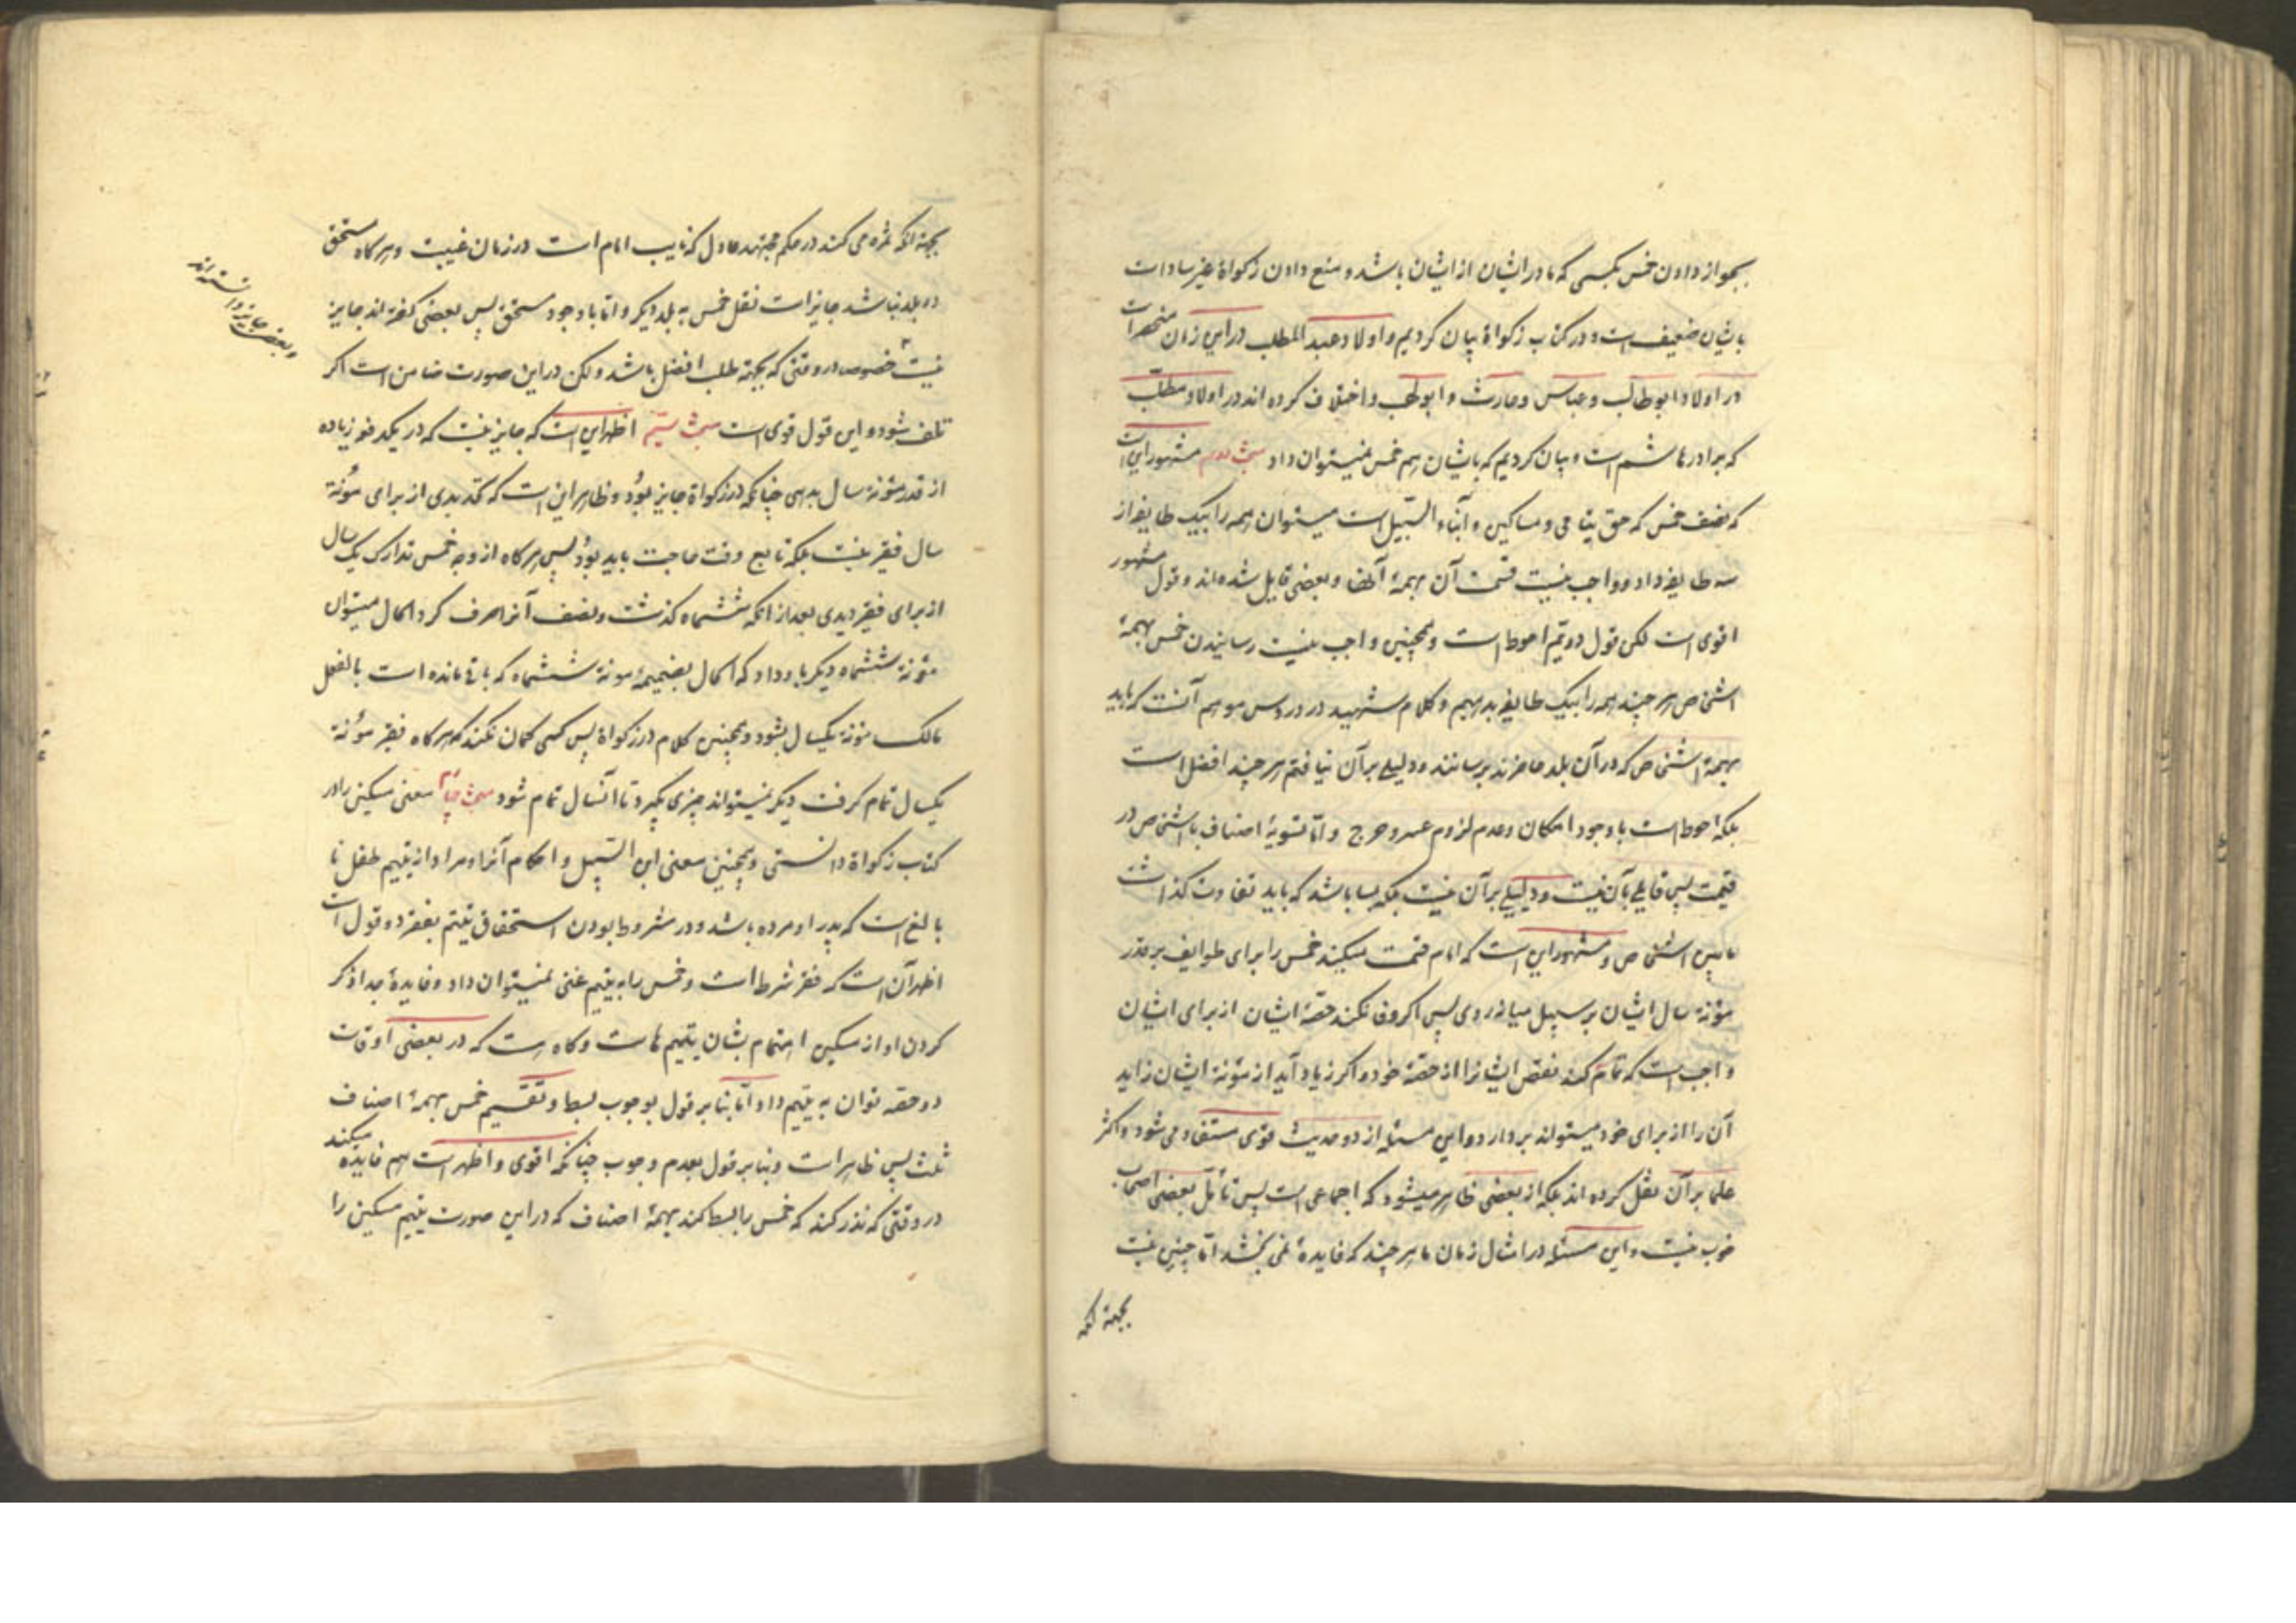 بجواز دادن خمس بکسی که مادر ایشان از ایشان باشد و منع دادن زکواة غیر سادات
بایشان ضعیف است و در کتاب زکواة بیان کردیم و اولاد عبد المطلب در این زمان منحصر است
در اولاد ابو طالب و عباس و حارث و ابو لهب و اختلاف کرده اند در اولاد مطلب
که برادر هاشم است و بیان کردیم که بایشان هم خمس نمیتوان داد مبحث دوم مشهور این است
که نصف خمس که حق یتامی و مساکین و ابناء السبیل است میتوان همه را بیک طایفه از
سه طایفه داد و واجب نیست قسمت آن بهمهٔ آنها و بعضی قایل شده اند و قول مشهور
اقوی است لکن قول دویّم احوط است و همچنین واجب نیست رسانیدن خمس بهمهٔ
اشخاص هر چند همه را بیک طایفه بدهیم و کلام شهید در دروس موهم آنست که باید
بهمهٔ اشخاص که در آن بلد حاضرند برسانند و دلیلی بر آن نیافتم هر چند افضل است
بلکه احوط است با وجود امکان و عدم لزوم عسر و حرج و امّا تسویهٔ اصناف یا اشخاص در
قیمت پس قایلی بآن نیست و دلیلی بر آن نیست بلکه بسا باشد که باید تفاوت گذاشت
مابین اشخاص و مشهور این است که امام قسمت میکند خمس را برای طوایف بر قدر
مؤنهٔ سال ایشان بر سبیل میانه روی پس اگر وفا نکند حصّهٔ ایشان از برای ایشان
واجب است که تمام کند نقص ایشانرا از حصّهٔ خود و اگر زیاد آید از مؤنهٔ ایشان زاید
آن را از برای خود میتواند بردارد و این مسئله از دو حدیث قوی مستفاد می شود و اکثر
علما بر آن نقل کرده اند بلکه از بعضی ظاهر میشود که اجماعی است پس تأمّل بعضی اصحاب
خوب نیست و این مسئله در امثال زمان ما هر چند که فایدهٔ نمی بخشد امّا چنین نیست
بجهة آنکه
بجهة آنکه ثمره می کند در حکم مجتهد عادل که نایب امام است در زمان غیبت و هر گاه مستحق
در بلد نباشد جایز است نقل خمس به بلد دیگر و امّا با وجود مستحق پس بعضی گفته اند جایز
نیست خصوص در وقتی که بجهة طلب افضل باشد و لکن در این صورت ضامن است اگر
و بعضی جایز دانسته اند
تلف شود و این قول قوی است مبحث سیّم اظهر این است که جایز نیست که در یکدفعه زیاده
از قدر مؤنهٔ سال بدهی چنانکه در زکواة جایز بود و ظاهر این است که تحدیدی از برای مؤنهٔ
سال فقیر نیست بلکه تابع وقت حاجت باید بود پس هر گاه از وجه خمس تدارک یک سال
از برای فقیر دیدی بعد از آنکه ششماه گذشت و نصف آنرا صرف کرد الحال میتوان
مؤنهٔ ششماه دیگر باو داد که الحال بضمیمهٔ مونهٔ ششماه که باقی مانده است بالفعل
مالک مؤنهٔ یکسال بشود و همچنین کلام در زکواة پس کسی گمان نکند که هر گاه فقیر مؤنهٔ
یکسال تمام گرفت دیگر نمیتواند چیزی بگیرد تا آنسال تمام شود مبحث چهارم معنی مسکین را در
کتاب زکواة دانستی و همچنین معنی ابن السبیل و احکام آنرا و مراد از یتیم طفل نا
بالغ است که پدر او مرده باشد و در مشروط بودن استحقاق یتیم بفقر دو قول است
اظهر آن است که فقر شرط است و خمس را به یتیم غنی نمیتوان داد و فایدهٔ جدا ذکر
کردن او از مسکین اهتمام بشان یتیم ها است و گاه هست که در بعضی اوقات
دو حصّه توان به یتیم داد امّا بنا بر قول بوجوب بسط و تقسیم خمس بهمهٔ اصناف
ثلث پس ظاهر است و بنا بر قول بعدم وجوب چنانکه اقوی و اظهر است هم فایده میکند
در وقتی که نذر کند که خمس را بسط کند بهمهٔ اصناف که در این صورت یتیم مسکین را